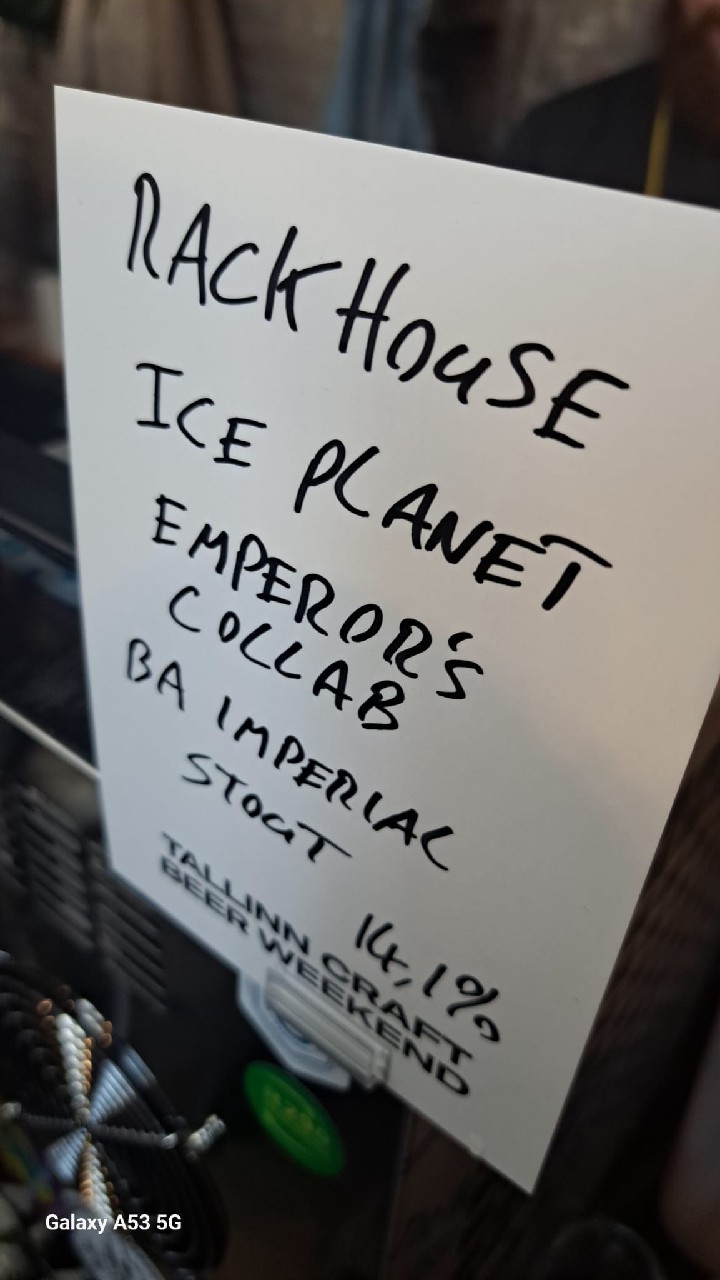 RACKHOUSE
ICE PLANET
EMPEROR'S
COLLAB
BA IMPERIAL
STOUT
14,1%
TALLINN CRAFT
BEER WEEKEND
Galaxy A53 5G